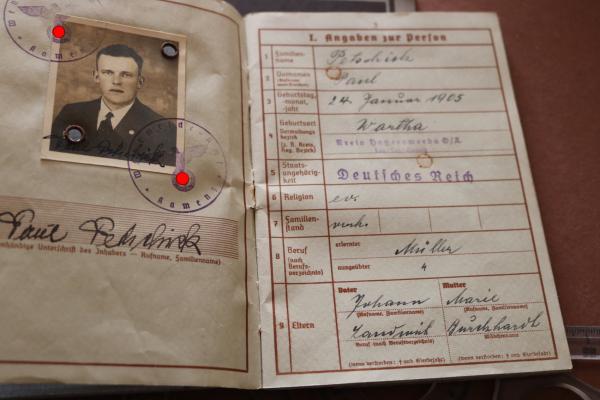 Kamenz
Paul Petschick
Eigenhändige Unterschrift des Inhabers — Rufname, Familienname)
I. Angaben zur Person
1 Familien-
name
Petschick
2 Vornamen
(Rufname
unterstreichen)
Paul
3 Geburtstag,
-monat,
-jahr
24. Januar 1905
4 Geburtsort
Verwaltungs-
bezirk
(z. B. Kreis,
Reg. Bezirk)
Wartha
Kreis Hoyerswerda O/L
5 Staats-
angehörig-
keit
Deutsches Reich
6 Religion
ev.
7 Familien-
stand
verh.
8 Beruf
(nach
Berufs-
verzeichnis)
erlernter
Müller
ausgeübter
"
9 Eltern
Vater
Mutter
Johann
Marie
(Rufname, Familienname)
(Rufname, Familienname)
Landwirt
Burkhardt
Beruf (nach Berufsverzeichnis)
Mädchenname
(wenn verstorben: † und Sterbejahr)
(wenn verstorben: † und Sterbejahr)